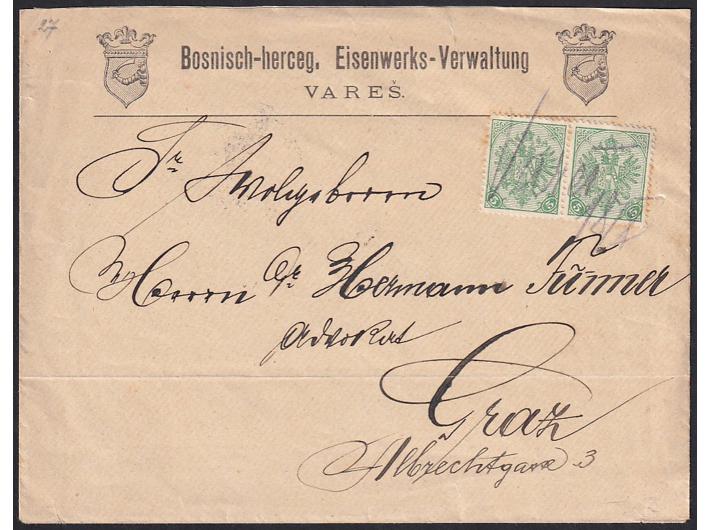 27
Bosnisch-herceg. Eisenwerks-Verwaltung
VAREŠ.
5 5 5 5
Sr Wolgeborren
Herrn Dr Hermann Tunner
Advokat
Graz
Albrechtgasse 3